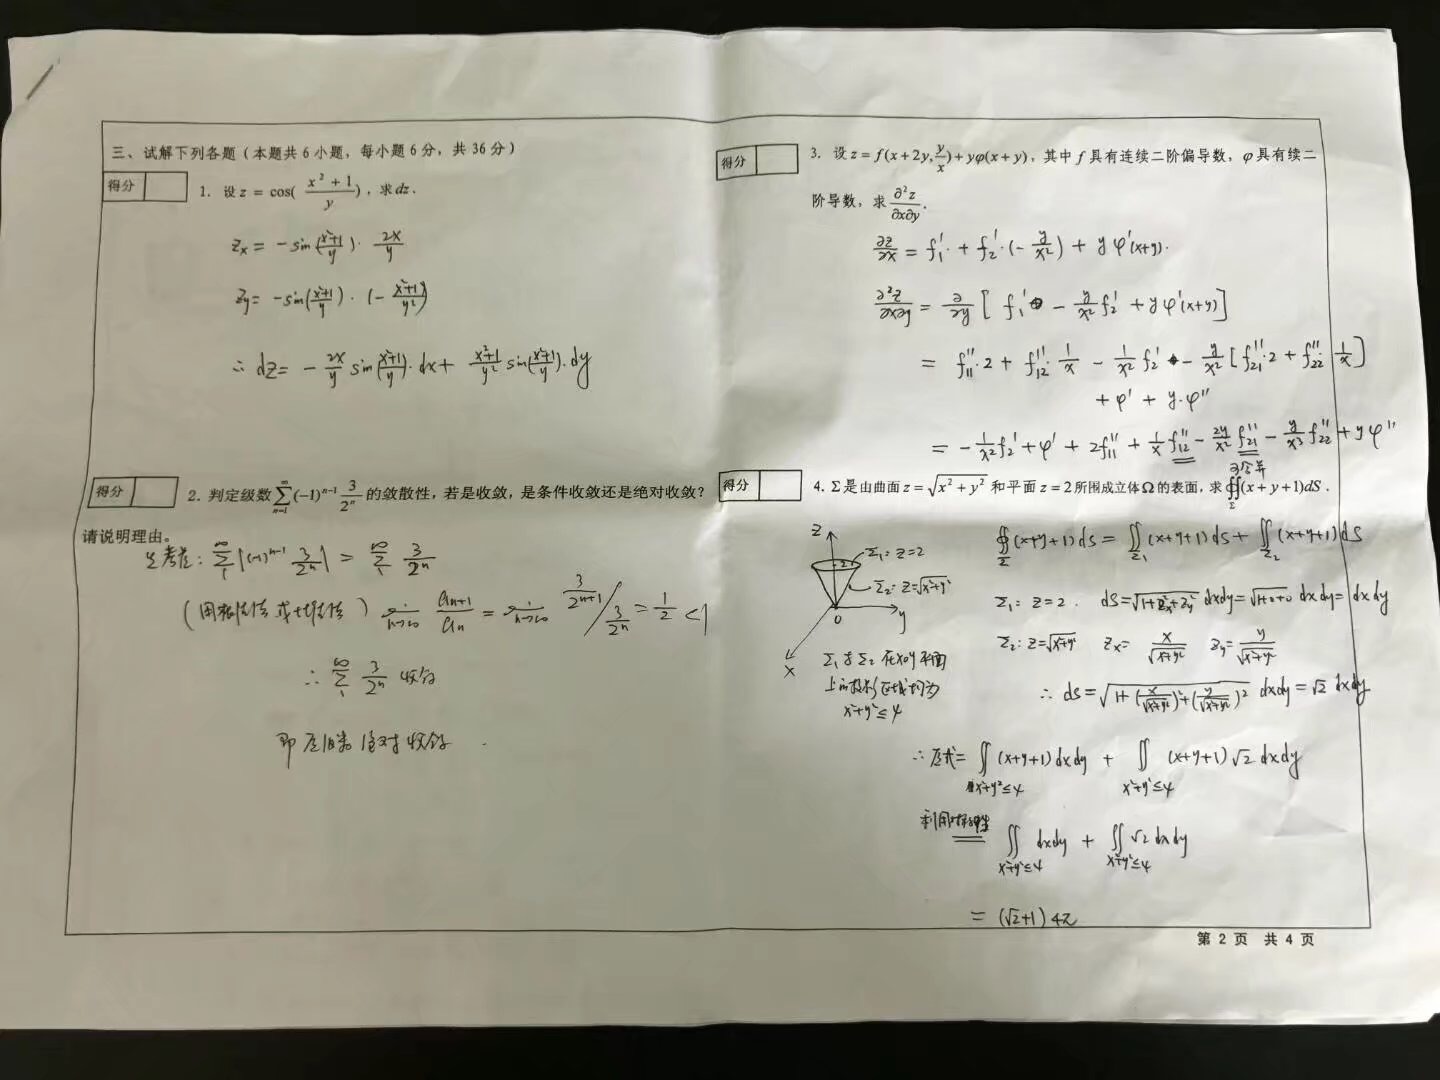 三、试解下列各题（本题共 6 小题，每小题 6 分，共 36 分）
得分
1. 设 z = cos( (x² + 1)/y )，求 dz．
z_x = -sin((x²+1)/y) · 2x/y
z_y = -sin((x²+1)/y) · (- (x²+1)/y²)
∴ dz = - 2x/y sin((x²+1)/y)·dx + (x²+1)/y² sin((x²+1)/y)·dy
得分
2. 判定级数 ∑_{n=1}^{∞} (-1)^{n-1} 3/2ⁿ 的敛散性，若是收敛，是条件收敛还是绝对收敛？
请说明理由。
先考虑: ∑_{1}^{∞} |(-1)^{n-1} 3/2ⁿ| = ∑_{1}^{∞} 3/2ⁿ
(用根值法或比值法) lim_{n→∞} a_{n+1}/a_n = lim_{n→∞} 3/2^{n+1} / 3/2ⁿ = 1/2 < 1
∴ ∑_{1}^{∞} 3/2ⁿ 收敛
即原级数绝对收敛.
得分
3. 设 z = f(x + 2y, y/x) + yφ(x + y)，其中 f 具有连续二阶偏导数，φ 具有续二
阶导数，求 ∂²z/∂x∂y．
∂z/∂x = f₁′· + f₂′·(- y/x²) + y φ′(x+y).
∂²z/∂x∂y = ∂/∂y [ f₁′ - y/x² f₂′ + y φ′(x+y) ]
= f₁₁″·2 + f₁₂″· 1/x - 1/x² f₂′ - y/x² [ f₂₁″·2 + f₂₂″· 1/x ]
+ φ′ + y·φ″
= - 1/x² f₂′ + φ′ + 2f₁₁″ + 1/x f₁₂″ - 2y/x² f₂₁″ - y/x³ f₂₂″ + y φ″
可合并
得分
4. Σ 是由曲面 z = √(x² + y²) 和平面 z = 2 所围成立体 Ω 的表面，求 ∯_Σ (x + y + 1)dS．
∯_Σ (x+y+1)dS = ∬_{Σ₁} (x+y+1)dS + ∬_{Σ₂} (x+y+1)dS
z
2
Σ₁: z=2
Σ₂: z=√(x²+y²)
0
y
x
Σ₁: z=2. dS = √(1+z_x²+z_y²) dxdy = √(1+0+0) dxdy = dxdy
Σ₂: z=√(x²+y²) z_x = x/√(x²+y²) z_y = y/√(x²+y²)
Σ₁与Σ₂在xoy平面
上的投影区域均为
x²+y²≤4
∴ dS = √(1+(x/√(x²+y²))²+(y/√(x²+y²))²) dxdy = √2 dxdy
∴ 原式 = ∬_{x²+y²≤4} (x+y+1)dxdy + ∬_{x²+y²≤4} (x+y+1)√2 dxdy
利用对称性
= ∬_{x²+y²≤4} dxdy + ∬_{x²+y²≤4} √2 dxdy
= (√2+1) 4π
第 2 页 共 4 页